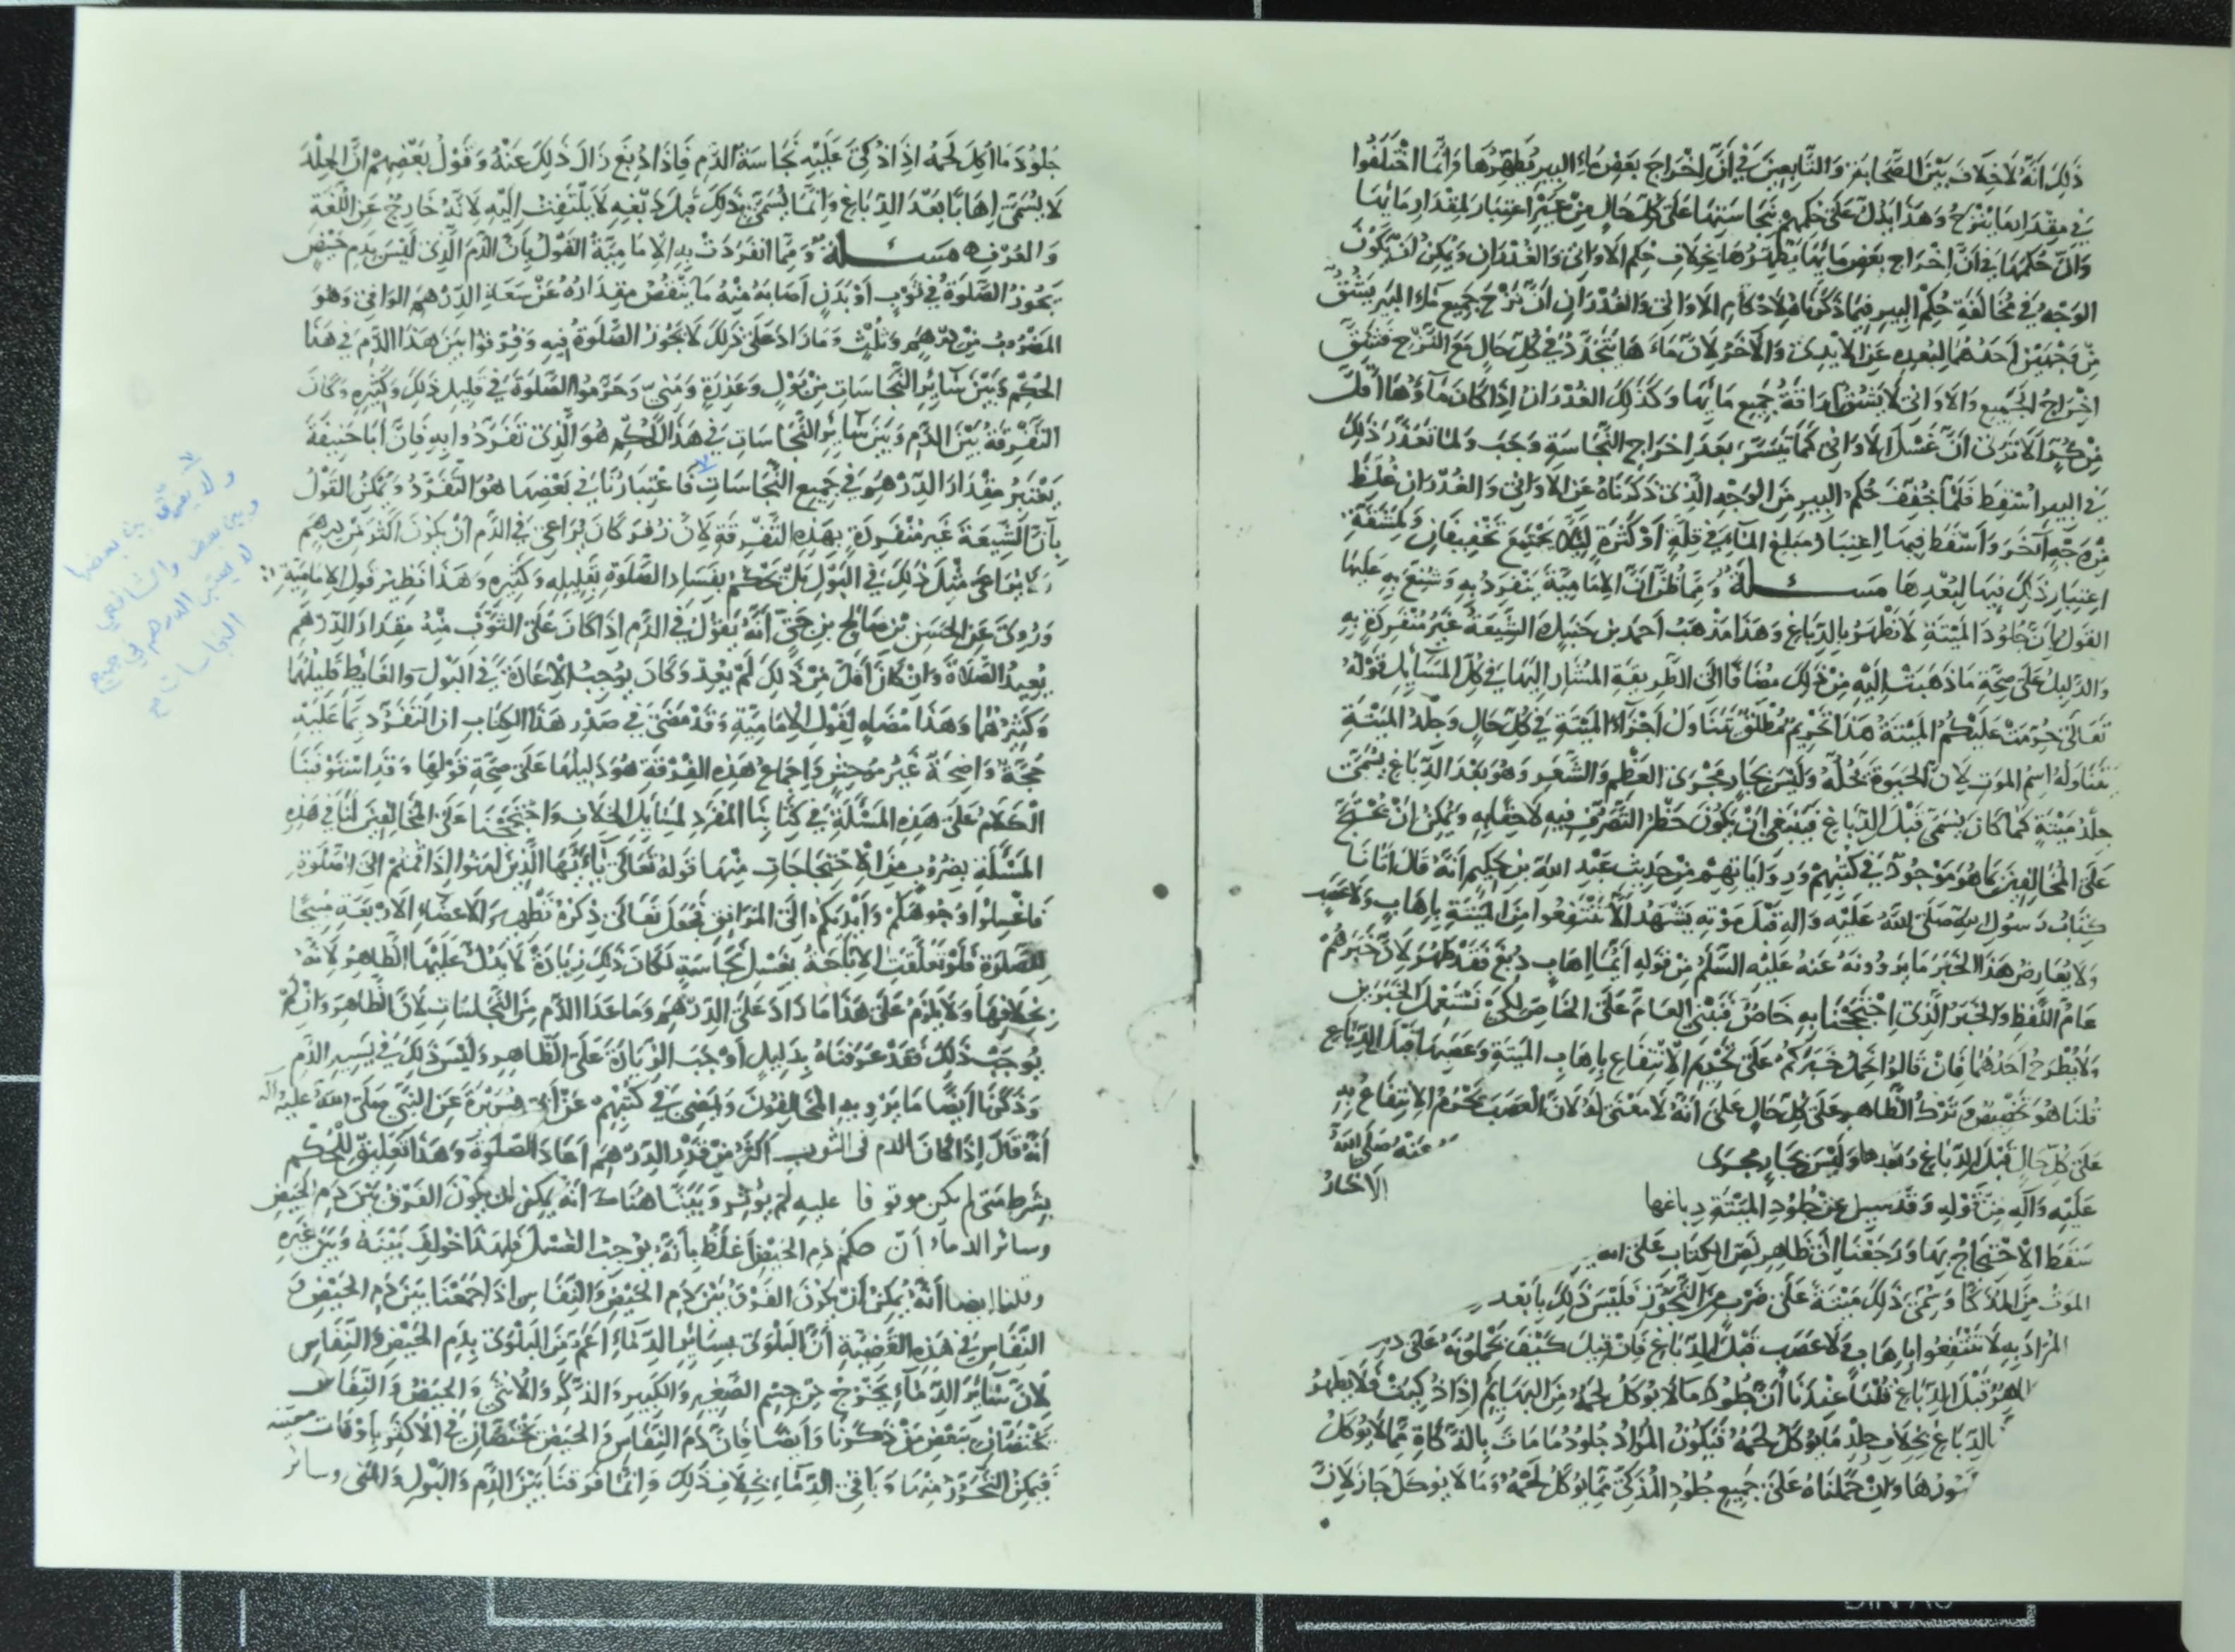 ذَلِكَ أَنَّهُ لَا خِلَافَ بَيْنَ الصَّحَابَةِ وَالتَّابِعِينَ فِي أَنَّ إِخْرَاجَ بَعْضِ مَاءِ البِيرِ يُطَهِّرُهَا وَإِنَّمَا اخْتَلَفُوا
فِي مِقْدَارِ مَا يُنْزَحُ وَهَذَا يَدُلُّ عَلَى حُكْمِهِمْ بِنَجَاسَتِهَا عَلَى كُلِّ حَالٍ مِنْ غَيْرِ اعْتِبَارٍ لِمِقْدَارِ مَائِهَا
وَانَّ حُكْمَهَا فِي أَنَّ إِخْرَاجَ بَعْضِ مَائِهَا يُطَهِّرُهَا بِخِلَافِ حُكْمِ الأَوَانِي وَالغُدْرَانِ وَيُمْكِنُ أَنْ يَكُونَ
الوَجْهُ فِي مُخَالَفَةِ حُكْمِ البِيرِ فِيمَا ذَكَرْنَاهُ لِأَحْكَامِ الأَوَانِي وَالغُدْرَانِ أَنَّ نَزْحَ جَمِيعِ مَاءِ البِيرِ يَشُقُّ
مِنْ وَجْهَيْنِ أَحَدُهُمَا لِبُعْدِهِ عَنِ الأَيْدِي وَالآخَرُ لِأَنَّ مَاءَهَا يَتَجَدَّدُ فِي كُلِّ حَالٍ مَعَ النَّزْحِ فَيَشُقُّ
إِخْرَاجُ الجَمِيعِ وَالأَوَانِي لَا يَشُقُّ إِرَاقَةُ جَمِيعِ مَائِهَا وَكَذَلِكَ الغُدْرَانُ إِذَا كَانَ مَاؤُهَا أَقَلَّ
مِنْ كُرٍّ أَلَا تَرَى أَنَّ غَسْلَ الأَوَانِي لَمَّا تَيَسَّرَ بَعْدَ إِخْرَاجِ النَّجَاسَةِ وَجَبَ وَلَمَّا تَعَذَّرَ ذَلِكَ
فِي البِيرِ أُسْقِطَ فَلَمَّا خُفِّفَ حُكْمُ البِيرِ مِنَ الوَجْهِ الَّذِي ذَكَرْنَاهُ عَنِ الأَوَانِي وَالغُدْرَانِ غُلِّظَ
مِنْ وَجْهٍ آخَرَ وَأُسْقِطَ فِيهَا اعْتِبَارُ مَبْلَغِ المَاءِ فِي قِلَّةٍ أَوْ كَثْرَةٍ لِئَلَّا يَجْتَمِعَ تَخْفِيفَانِ وَلِمَشَقَّةِ
اعْتِبَارِ ذَلِكَ فِيهَا لِبُعْدِهَا مَسْئَلَةٌ وَمِمَّا ظُنَّ أَنَّ الإِمَامِيَّةَ يَنْفَرِدُ بِهِ وَشُنِّعَ بِهِ عَلَيْهَا
القَوْلُ بِأَنَّ جُلُودَ المَيْتَةِ لَا تَطْهُرُ بِالدِّبَاغِ وَهَذَا مَذْهَبُ أَحْمَدَ بْنِ حَنْبَلٍ الشِّيعَةُ غَيْرُ مُنْفَرِدَةٍ بِهِ
وَالدَّلِيلُ عَلَى صِحَّةِ مَا ذَهَبَتْ إِلَيْهِ مِنْ ذَلِكَ مُضَافًا إِلَى الطَّرِيقَةِ المُشَارِ إِلَيْهَا فِي كُلِّ المَسَائِلِ قَوْلُهُ
تَعَالَى حُرِّمَتْ عَلَيْكُمُ المَيْتَةُ هَذَا تَحْرِيمٌ مُطْلَقٌ يَتَنَاوَلُ أَجْزَاءَ المَيْتَةِ فِي كُلِّ حَالٍ وَجِلْدُ المَيْتَةِ
يَتَنَاوَلُهُ اسْمُ المَوْتِ لِأَنَّ الحَيَوةَ تَحُلُّهُ وَلَيْسَ بِجَارٍ مَجْرَى العَظْمِ وَالشَّعْرِ وَهُوَ بَعْدَ الدِّبَاغِ يُسَمَّى
جِلْدَ مَيْتَةٍ كَمَا كَانَ يُسَمَّى قَبْلَ الدِّبَاغِ فَيَنْبَغِي أَنْ يَكُونَ حَظْرُ التَّصَرُّفِ فِيهِ لَاحِقًا بِهِ وَيُمْكِنُ أَنْ يُحْتَجَّ
عَلَى المُخَالِفِينَ بِمَا هُوَ مَوْجُودٌ فِي كُتُبِهِمْ وَرِوَايَاتِهِمْ مِنْ حَدِيثِ عَبْدِ اللهِ بْنِ حَكِيمٍ أَنَّهُ قَالَ أَتَانَا
كِتَابُ رَسُولِ اللهِ صَلَّى اللهُ عَلَيْهِ وَالِهِ قَبْلَ مَوْتِهِ بِشَهْرٍ أَلَّا تَنْتَفِعُوا مِنَ المَيْتَةِ بِإِهَابٍ وَلَا عَصَبٍ
وَلَا يُعَارِضُ هَذَا الخَبَرَ مَا يَرْوُونَهُ عَنْهُ عَلَيْهِ السَّلَمُ مِنْ قَوْلِهِ أَيُّمَا إِهَابٍ دُبِغَ فَقَدْ طَهُرَ لِأَنَّ خَبَرَهُمْ
عَامُّ اللَّفْظِ وَالخَبَرُ الَّذِي احْتَجَجْنَا بِهِ خَاصٌّ فَنَبْنِي العَامَّ عَلَى الخَاصِّ لِكَيْ نَسْتَعْمِلَ الخَبَرَيْنِ
وَلَا يُطْرَحُ أَحَدُهُمَا فَإِنْ قَالُوا نَحْمِلُ خَبَرَكُمْ عَلَى تَحْرِيمِ الِانْتِفَاعِ بِإِهَابِ المَيْتَةِ وَعَصَبِهَا قَبْلَ الدِّبَاغِ
قُلْنَا هُوَ تَخْصِيصٌ وَتَرْكُ الظَّاهِرِ عَلَى كُلِّ حَالٍ عَلَى أَنَّهُ لَا مَعْنَى لَهُ لِأَنَّ العَصَبَ يَحْرُمُ الِانْتِفَاعُ بِهِ
عَلَى كُلِّ حَالٍ قَبْلَ الدِّبَاغِ وَبَعْدَهَا وَلَيْسَ بِجَارٍ مَجْرَى عَنْهُ صَلَّى اللهُ
عَلَيْهِ وَآلِهِ مِنْ قَوْلِهِ وَقَدْ سُئِلَ عَنْ جُلُودِ المَيْتَةِ دِبَاغُهَا الأَخْبَارُ
سَقَطَ الِاحْتِجَاجُ بِهَا وَرَجَعْنَا إِلَى ظَاهِرِ نَصِّ الكِتَابِ عَلَى أنه
المَوْتُ مِنَ المُذَكَّا وَسُمِّيَ ذَلِكَ مَيْتَةً عَلَى ضَرْبٍ مِنَ التَّجَوُّزِ فَلَيْسَ ذَلِكَ بِأَبْعَدَ
المُرَادَ بِهِ لَا تَنْتَفِعُوا بِإِهَابٍ وَلَا عَصَبٍ قَبْلَ الدِّبَاغِ فَإِنْ قِيلَ كَيْفَ تَحْمِلُونَهُ عَلَى
قَبْلَ الدِّبَاغِ قُلْنَا عِنْدَنَا أَنَّ جُلُودَ مَا لَا يُؤكَلُ لَحْمُهُ مِنَ البَهَايِمِ إِذَا ذُكِّيَتْ فَلَا يَطْهُرُ
بِالدِّبَاغِ بِخِلَافِ جِلْدِ مَا يُؤكَلُ لَحْمُهُ فَيَكُونُ المُرَادُ جُلُودَ مَا مَاتَ بِالذَّكَاةِ مِمَّا لَا يُؤكَلُ
وَإِنْ حَمَلْنَاهُ عَلَى جَمِيعِ جُلُودِ المُذَكَّى مِمَّا يُؤكَلُ لَحْمُهُ وَمَا لَا يُؤكَلُ جَازَ لِأَنَّ
جُلُودَ مَا أُكِلَ لَحْمُهُ إِذَا ذُكِّيَ عَلَيْهِ نَجَاسَةُ الدَّمِ فَإِذَا دُبِغَ زَالَ ذَلِكَ عَنْهُ وَقَوْلُ بَعْضِهِمْ انَّ الجِلْدَ
لَا يُسَمَّى إِهَابًا بَعْدَ الدِّبَاغِ وَإِنَّمَا يُسَمَّى بِذَلِكَ قَبْلَ دَبْغِهِ لَا يُلْتَفَتُ إِلَيْهِ لِأَنَّهُ خَارِجٌ عَنِ اللُّغَةِ
وَالعُرْفِ ه مَسْئَلَةٌ وَمِمَّا انْفَرَدَتْ بِهِ الإِمَامِيَّةُ القَوْلُ بِأَنَّ الدَّمَ الَّذِي لَيْسَ بِدَمِ حَيْضٍ
يَجُوزُ الصَّلَوةُ فِي ثَوْبٍ أَوْ بَدَنٍ أَصَابَهُ مِنْهُ مَا يَنْقُصُ مِقْدَارُهُ عَنْ سَعَةِ الدِّرْهَمِ الوَافِي وَهُوَ
المَضْرُوبُ مِنْ دِرْهَمٍ وَثُلُثٍ وَمَا زَادَ عَلَى ذَلِكَ لَا يَجُوزُ الصَّلَوةُ فِيهِ وَفَرَّقُوا بَيْنَ هَذَا الدَّمِ فِي هَذَا
الحُكْمِ وَبَيْنَ سَائِرِ النَّجَاسَاتِ مِنْ بَوْلٍ وَعَذِرَةٍ وَمَنِيٍّ وَحَرَّمُوا الصَّلَوةَ فِي قَلِيلِ ذَلِكَ وَكَثِيرِهِ وَكَانَ
التَّفْرِقَةُ بَيْنَ الدَّمِ وَبَيْنَ سَائِرِ النَّجَاسَاتِ فِي هَذَا الحُكْمِ هُوَ الَّذِي تَفَرَّدُوا بِهِ فَإِنَّ أَبَا حَنِيفَةَ
يَعْتَبِرُ مِقْدَارَ الدِّرْهَمِ فِي جَمِيعِ النَّجَاسَاتِ فَاعْتِبَارُنَا فِي بَعْضِهَا هُوَ التَّفَرُّدُ وَيُمْكِنُ القَوْلُ
بِأَنَّ الشِّيعَةَ غَيْرُ مُنْفَرِدَةٍ بِهَذِهِ التَّفْرِقَةِ لِأَنَّ زُفَرَ كَانَ يُرَاعِي فِي الدَّمِ أَنْ يَكُونَ أَكْثَرَ مِنْ دِرْهَمٍ
وَلَا يُرَاعِي مِثْلَ ذَلِكَ فِي البَوْلِ بَلْ يَحْكُمُ بِفَسَادِ الصَّلَوةِ بِقَلِيلِهِ وَكَثِيرِهِ وَهَذَا نَظِيرُ قَوْلِ الإِمَامِيَّةِ
وَرُوِيَ عَنِ الحَسَنِ بْنِ صَالِحِ بْنِ حَيٍّ أَنَّهُ يَقُولُ فِي الدَّمِ إِذَا كَانَ عَلَى الثَّوْبِ مِنْهُ مِقْدَارُ الدِّرْهَمِ
يُعِيدُ الصَّلَاةَ وَإِنْ كَانَ أَقَلَّ مِنْ ذَلِكَ لَمْ يُعِدْ وَكَانَ يُوجِبُ الإِعَادَةَ فِي البَوْلِ وَالغَائِطِ قَلِيلِهِمَا
وَكَثِيرِهِمَا وَهَذَا مُضَاهٍ لِقَوْلِ الإِمَامِيَّةِ وَقَدْ مَضَى فِي صَدْرِ هَذَا الكِتَابِ ان التَّفَرُّدَ بِمَا عَلَيْهِ
حُجَّةٌ وَاضِحَةٌ غَيْرُ مُوحِشٍ وَإِجْمَاعُ هَذِهِ الفِرْقَةِ هُوَ دَلِيلُهَا عَلَى صِحَّةِ قَوْلِهَا وَقَدِ اسْتَوْفَيْنَا
الكَلَامَ عَلَى هَذِهِ المَسْئَلَةِ فِي كِتَابِنَا المُفْرَدِ لِمَسَائِلِ الخِلَافِ وَاحْتَجَجْنَا عَلَى المُخَالِفِينَ لَنَا فِي هَذِهِ
المَسْئَلَةِ بِضُرُوبٍ مِنَ الِاحْتِجَاجَاتِ مِنْهَا قَوْلُهُ تَعَالَى يَا أَيُّهَا الَّذِينَ آمَنُوا إِذَا قُمْتُمْ إِلَى الصَّلَوةِ
فَاغْسِلُوا وُجُوهَكُمْ وَأَيْدِيَكُمْ إِلَى المَرَافِقِ فَجَعَلَ تَعَالَى ذِكْرُهُ تَطْهِيرَ الأَعْضَاءِ الأَرْبَعَةِ مُبِيحًا
لِلصَّلَوةِ فَلَوْ تَعَلَّقَتِ الإِبَاحَةُ بِغَسْلِ نَجَاسَةٍ لَكَانَ ذَلِكَ زِيَادَةً لَا يَدُلُّ عَلَيْهَا الظَّاهِرُ لِأَنَّهُ
بِخِلَافِهَا وَلَا يَلْزَمُ عَلَى هَذَا مَا زَادَ عَلَى الدِّرْهَمِ وَمَا عَدَا الدَّمِ مِنَ النَّجَاسَاتِ لِأَنَّ الظَّاهِرَ وَإِنْ لَمْ
يُوجِبْ ذَلِكَ فَقَدْ عَرَفْنَاهُ بِدَلِيلٍ أَوْجَبَ الزِّيَادَةَ عَلَى الظَّاهِرِ وَلَيْسَ ذَلِكَ فِي يَسِيرِ الدَّمِ
وَذَكَرْنَا أَيْضًا مَا يَرْوِيهِ المُخَالِفُونَ وَيَمْضِي فِي كُتُبِهِمْ عَنْ أَبِي هُرَيْرَةَ عَنِ النَّبِيِّ صَلَّى اللهُ عَلَيْهِ وَآلِهِ
أَنَّهُ قَالَ إِذَا كَانَ الدم فى الثوب أَكْثَرَ مِنْ قَدْرِ الدِّرْهَمِ أَعَادَ الصَّلَوةَ وَهَذَا تَعْلِيقٌ لِلْحُكْمِ
بِشَرْطٍ مَتَى لم يكن موقوفا عليه لَمْ يُؤَثِّرْ وَبَيَّنَّا هُنَاكَ أَنَّهُ يُمْكِنُ أَنْ يَكُونَ الفَرْقُ بَيْنَ دَمِ الحَيْضِ
وسائر الدماء أَنَّ حكم دَمِ الحَيْضِ أَغْلَظُ بِأَنَّهُ يُوجِبُ الغُسْلَ فَلِهَذَا خُولِفَ بَيْنَهُ وَبَيْنَ غَيْرِهِ
وقلنا ايضا أَنَّهُ يُمْكِنُ أَنْ يَكُونَ الفَرْقُ بَيْنَ دَمِ الحَيْضِ وَالنِّفَاسِ إِذَا جَمَعْنَا بَيْنَ دَمِ الحَيْضِ وَ
النِّفَاسِ فِي هَذِهِ القَضِيَّةِ أَنَّ البَلْوَى بِسَائِرِ الدِّمَاءِ أَعَمُّ مِنَ البَلْوَى بِدَمِ الحَيْضِ وَالنِّفَاسِ
لِأَنَّ سَائِرَ الدِّمَاءِ يَخْرُجُ مِنْ جِسْمِ الصَّغِيرِ وَالكَبِيرِ وَالذَّكَرِ وَالأُنْثَى وَالحَيْضُ وَالنِّفَاسُ
يَخْتَصَّانِ بِبَعْضِ مَنْ ذَكَرْنَا وَأَيْضًا فَإِنَّ دَمَ النِّفَاسِ وَالحَيْضِ يَخْتَصَّانِ فِي الأَكْثَرِ بِأَوْقَاتٍ معينة
فَيُمْكِنُ التَّحَرُّزُ مِنْهَا وَبَاقِي الدِّمَاءِ بِخِلَافِ ذَلِكَ وَإِنَّمَا فَرَّقْنَا بَيْنَ الدَّمِ وَالبَوْلِ وَالمَنِي وسائر
ولا يفرق بين بعضها
وبين بعض والشافعي
لا يعتبر الدرهم في جميع
النجاسات